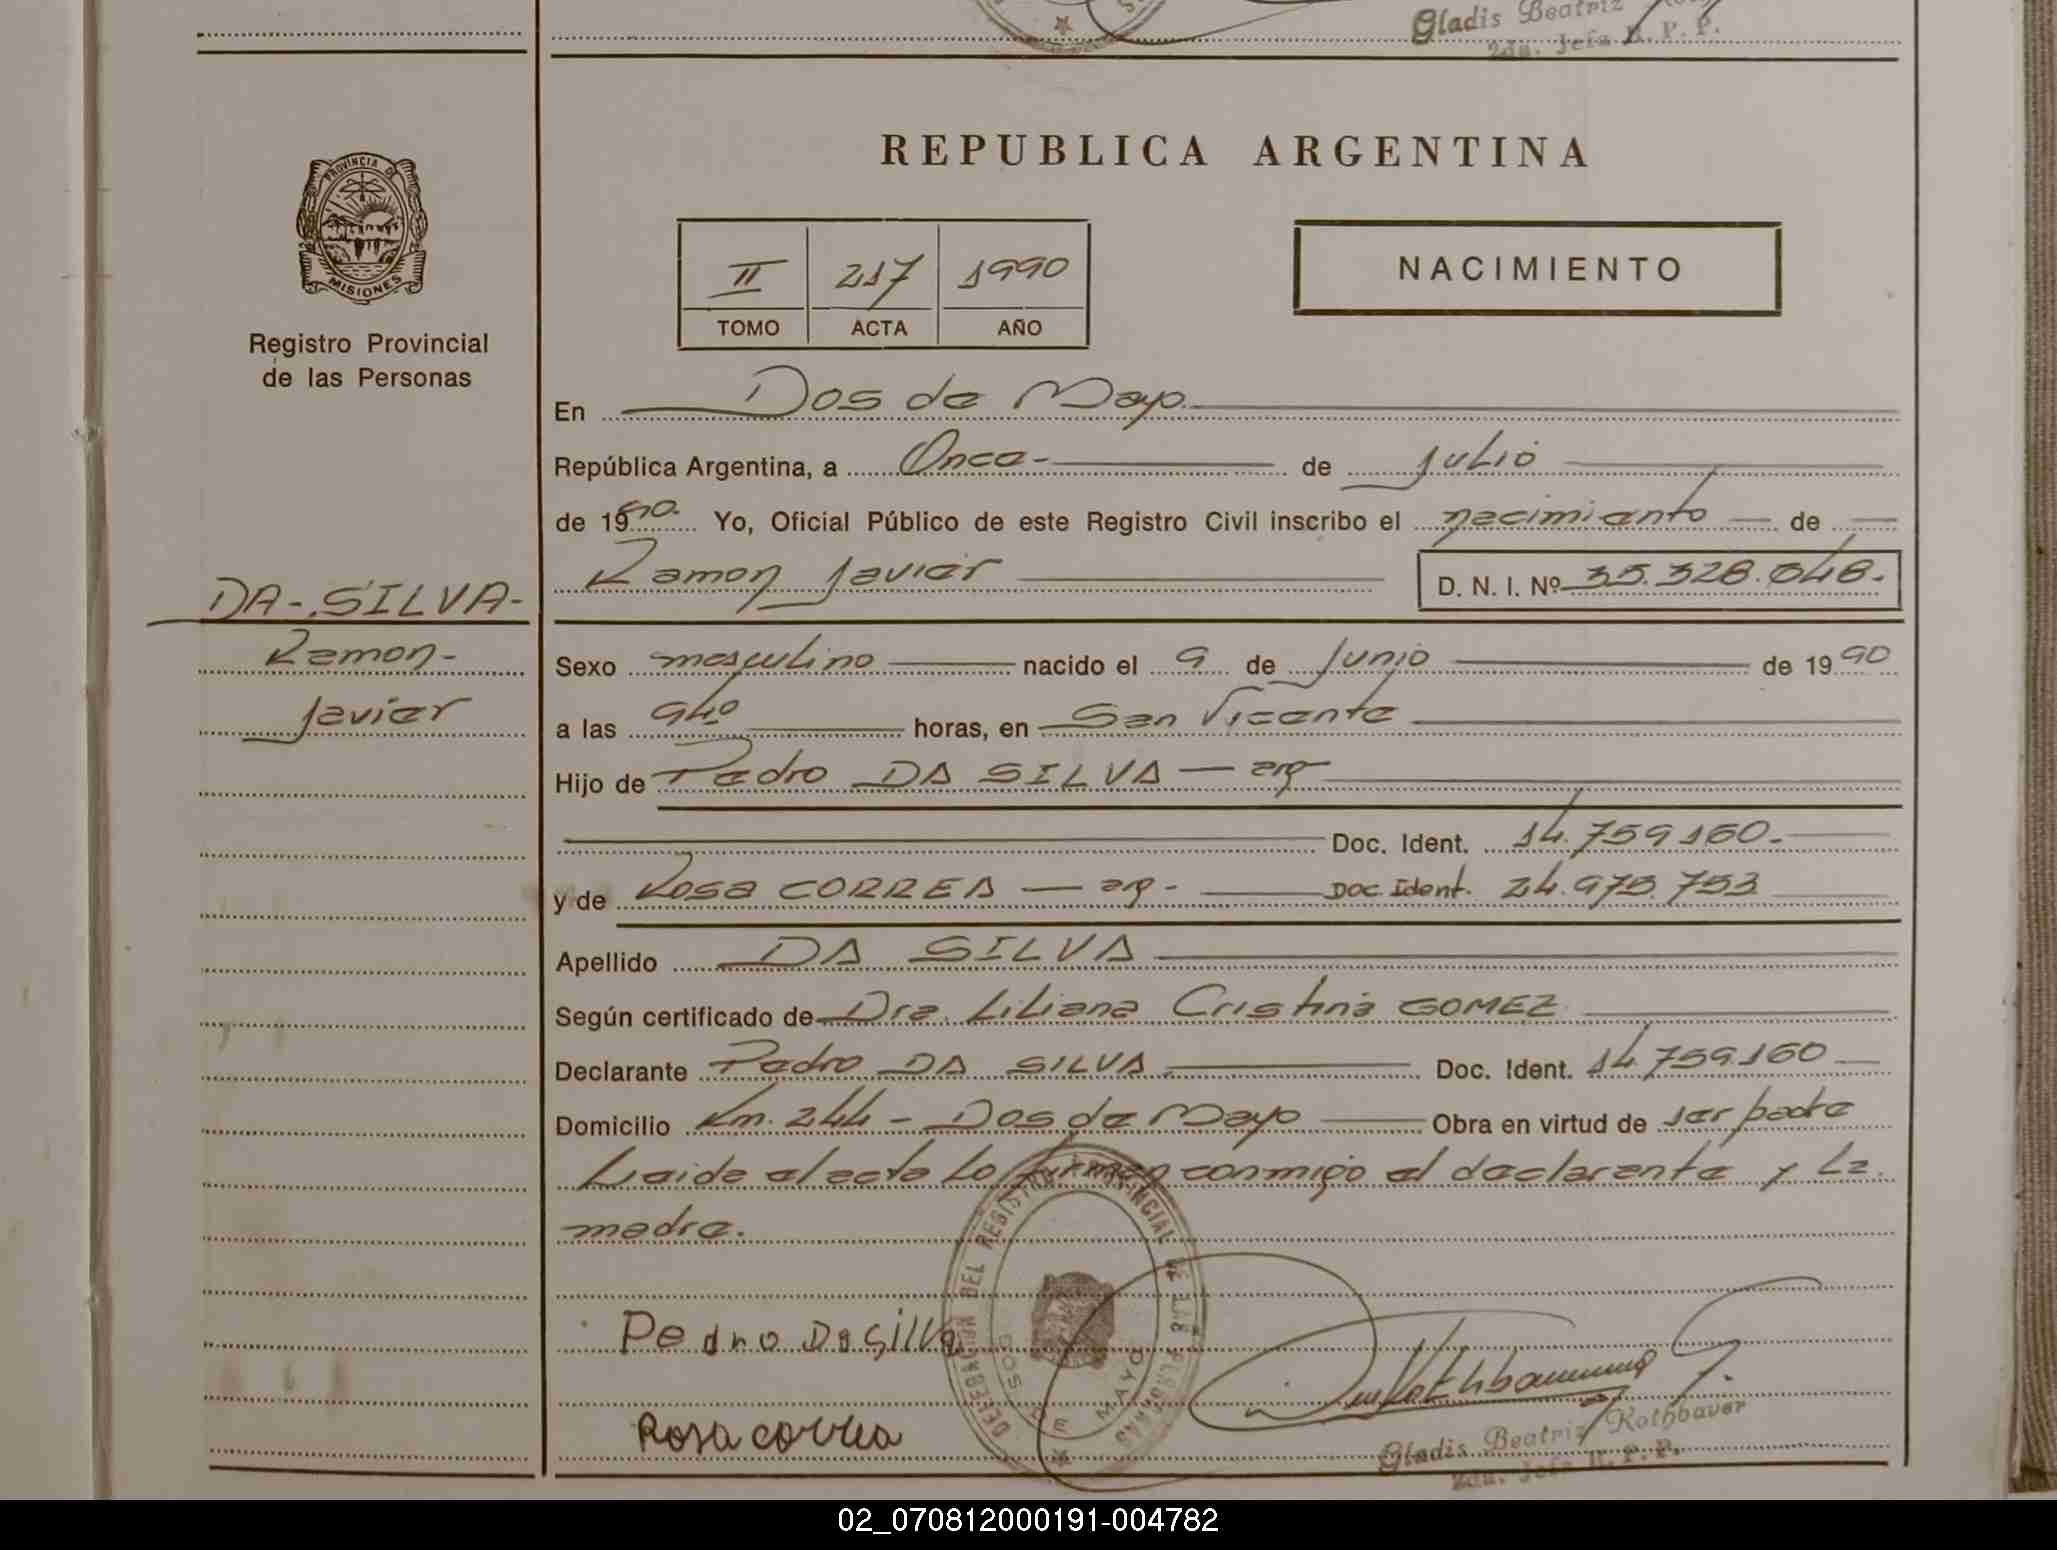 Gladis Beatriz
2da. Jefa R. P. P.
REPUBLICA ARGENTINA
PROVINCIA DE
MISIONES
II 217 1990
TOMO ACTA AÑO
NACIMIENTO
Registro Provincial
de las Personas
En Dos de Mayo
República Argentina, a Once- de Julio
de 1990. Yo, Oficial Público de este Registro Civil inscribo el nacimiento de
Ramon Javier D. N. I. Nº 35.328.048.-
DA-SILVA-
Ramon-
Javier
Sexo masculino nacido el 9 de Junio de 1990
a las 940 horas, en San Vicente
Hijo de Pedro DA SILVA — arg
Doc. Ident. 14.759.160.-
y de ROSA CORREA — arg - Doc Ident. 24.975.753
Apellido DA SILVA
Según certificado de Dra. Liliana Cristina GOMEZ
Declarante Pedro DA SILVA Doc. Ident. 14.759.160
Domicilio Km. 244 - Dos de Mayo Obra en virtud de ser padre
Leida el acta lo firman conmigo el declarante y la
madre.
DELEGACION DEL REGISTRO PROVINCIAL DE LAS PERSONAS
DOS DE MAYO
Pedro Da Silva
Rosa correa
Gladis Beatriz Rothbauer
2da. Jefa R. P. P.
02_070812000191-004782